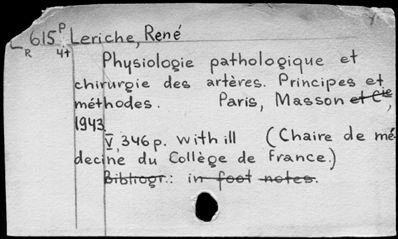 R615P Leriche, René
4+
Physiologie pathologique et
chirurgie des artères. Principes et
méthodes. Paris, Masson et Cie,
1943
V, 346p. with ill (Chaire de mé-
decine du Collège de France.)
Bibliogr.: in foot notes.